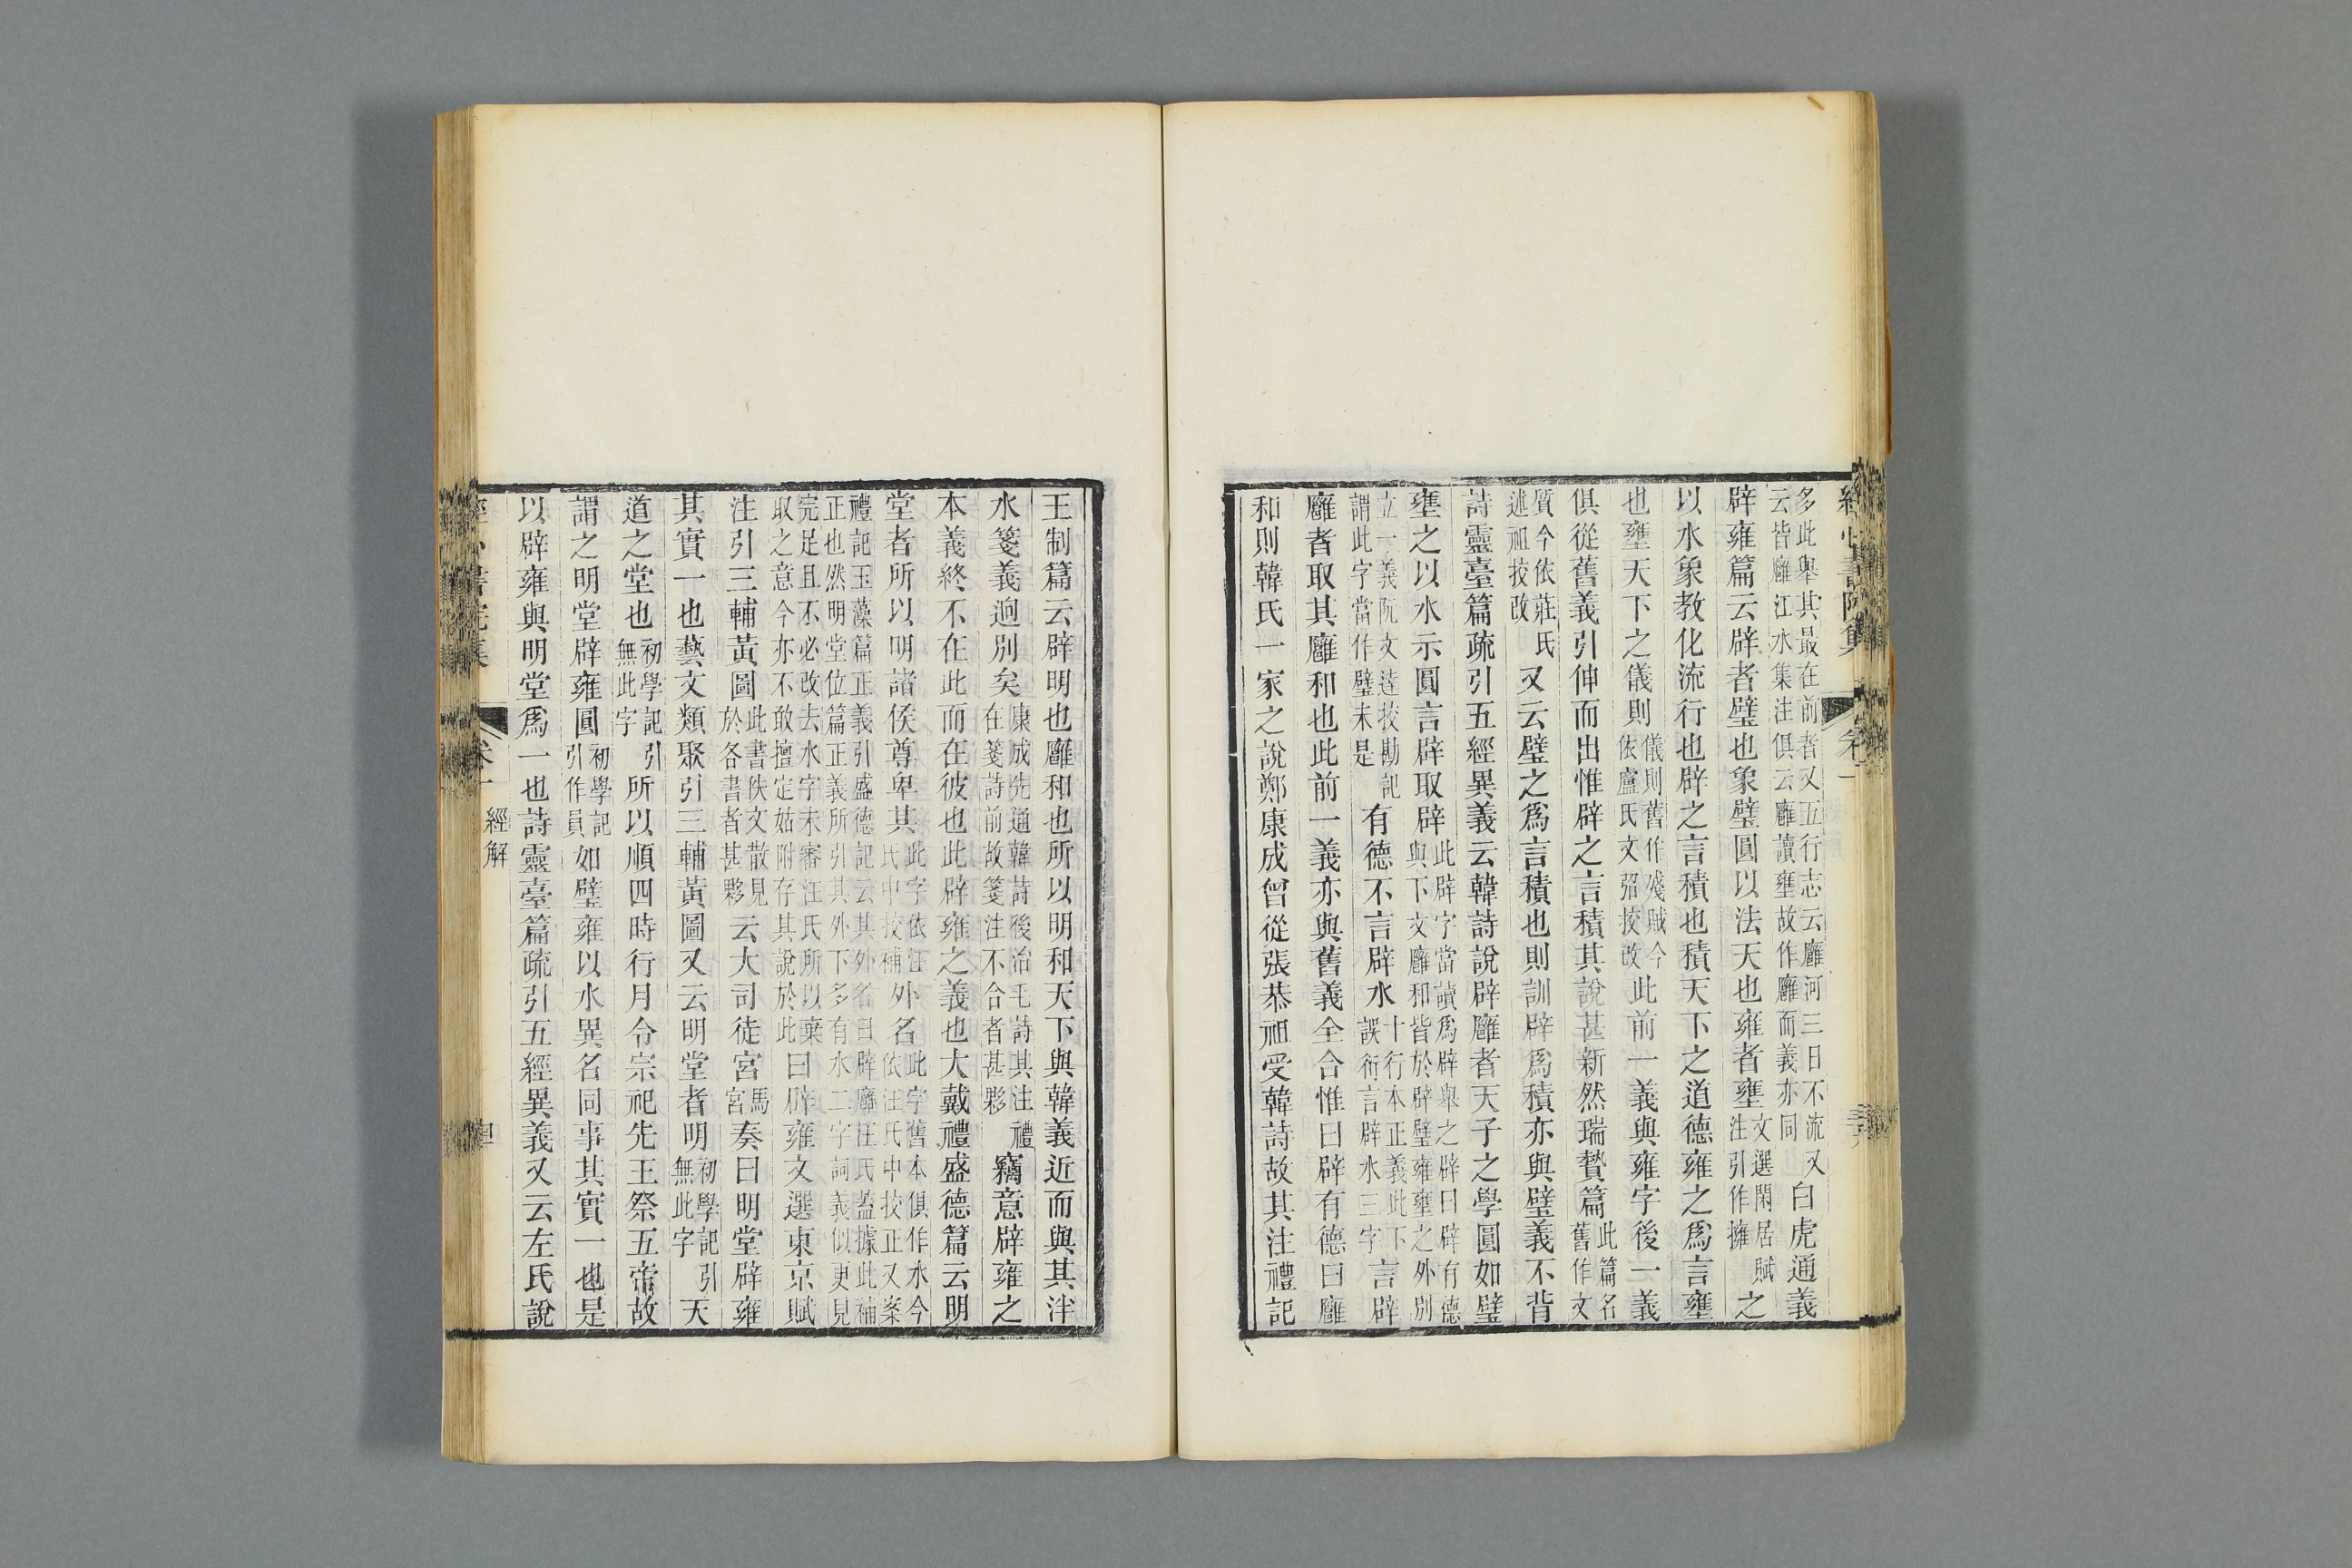 多此舉其最在前者又五行志云雝河三日不流又
云皆雝江水集注俱云雝讀壅故作雝而義亦同
白虎通義
辟雍篇云辟者璧也象璧圓以法天也雍者壅
文選閑居賦
注引作擁
之
以水象教化流行也辟之言積也積天下之道德雍之爲言壅
也壅天下之儀則
儀則舊作殘賊今
依盧氏文弨挍改
此前一義與雍字後一義
俱從舊義引伸而出惟辟之言積其說甚新然瑞贄篇
此篇名
舊作文
質今依莊氏
述祖挍改
又云璧之爲言積也則訓辟爲積亦與璧義不背
詩靈臺篇疏引五經異義云韓詩說辟雝者天子之學圓如璧
壅之以水示圓言辟取辟
此辟字當讀爲辟舉之辟曰辟有德
與下文雝和皆於辟璧雍壅之外別
立一義阮文達挍勘記
謂此字當作璧未是
有德不言辟水
十行本正義此下
誤衍言辟水三字
言辟
雝者取其雝和也此前一義亦與舊義全合惟曰辟有德曰雝
和則韓氏一家之說鄭康成曾從張恭祖受韓詩故其注禮記
王制篇云辟明也雝和也所以明和天下與韓義近而與其泮
水箋義迥別矣
康成先通韓詩後治毛詩其注禮
在箋詩前故箋注不合者甚夥
竊意辟雍之
本義終不在此而在彼也此辟雍之義也大戴禮盛德篇云明
堂者所以明諸侯尊卑其
此字依汪
氏中挍補
外名
此字舊本俱作水今
依汪氏中挍正又案
禮記玉藻篇正義引盛德記云其外名曰辟雝汪氏葢據此補
正也然明堂位篇正義所引其外下多有水二字詞義似更見
完足且不必改去水字未審汪氏所以棄
取之意今亦不敢擅定姑附存其說於此
曰辟雍文選東京賦
注引三輔黃圖
此書佚文散見
於各書者甚夥
云大司徒宮
馬
宮
奏曰明堂辟雍
其實一也藝文類聚引三輔黃圖又云明堂者明
初學記引
無此字
天
道之堂也
初學記引
無此字
所以順四時行月令宗祀先王祭五帝故
謂之明堂辟雍圓
初學記
引作員
如璧雍以水異名同事其實一也是
以辟雍與明堂爲一也詩靈臺篇疏引五經異義又云左氏說
經解